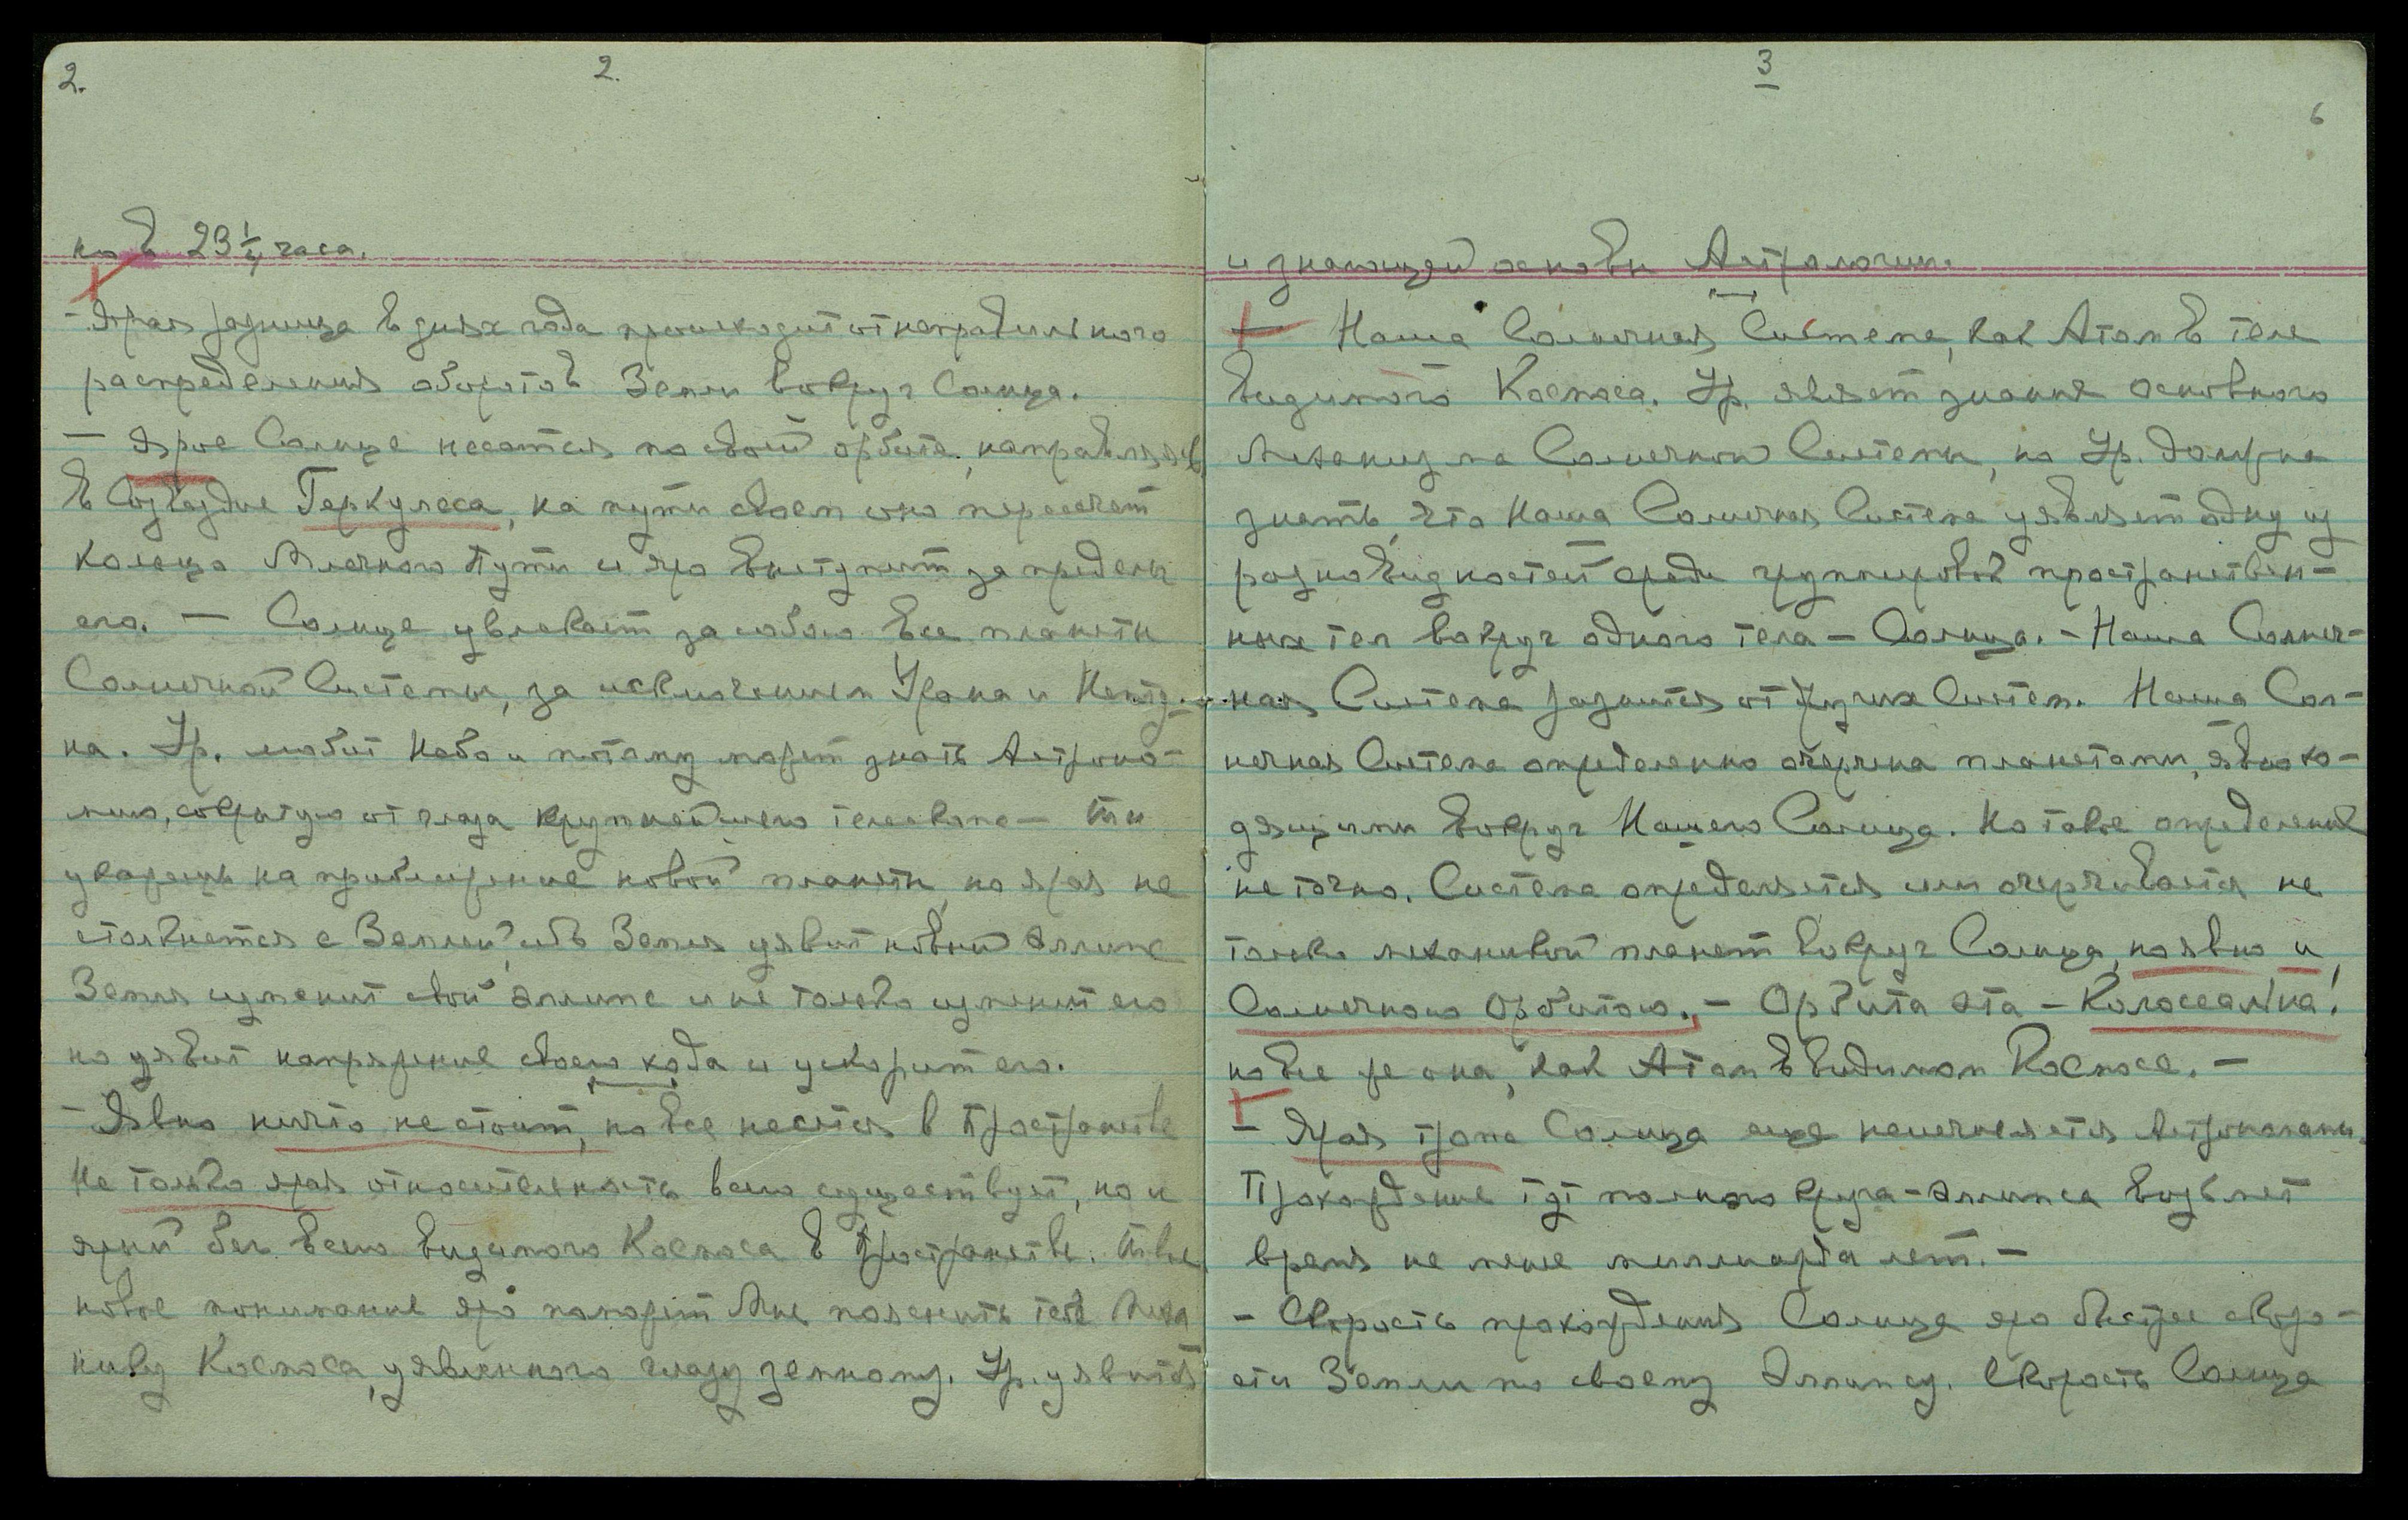 2.
2.
но в 23 1/4 часа.
- Ярая разница в днях года происходит от неправильного
распределения оборотов Земли вокруг Солнца.
— Ярое Солнце несется по своей орбите, направляясь
в Созвездие Геркулеса, на пути своем оно пересечет
кольцо Млечного Пути и яро выступит за пределы
его. — Солнце увлекает за собою все планеты
Солнечной Системы, за исключением Урана и Непту-
на. Ур. любит Небо и потому может знать Астроно-
мию, сокрытую от глаза крупнейшего телескопа — Ты
укажешь на приближение новой планеты, но ярая не
столкнется с Землей, ибо Земля уявит новый эллипс
Земля изменит свой эллипс и не только изменит его
но уявит напряжение своего хода и ускорит его.
- Явно ничто не стоит, но все несется в Пространстве
Не только ярая относительность всего существует, но и
ярый бег всего видимого Космоса в Пространстве. Твое
новое понимание яро поможет Мне пояснить тебе Меха
нику Космоса, уявленного глазу земному. Ур. уявится
3
6
и знающей основы Астрологии.
— Наша Солнечная Система, как Атом в теле
видимого Космоса. Ур. являет знание основного
Механизма Солнечной Системы, но Ур. должна
знать, что Наша Солнечная Система уявляет одну из
разновидностей среди группировок пространствен-
ных тел вокруг одного тела — Солнца. - Наша Солнеч-
ная Система разнится от других Систем. Наша Сол-
нечная Система определенно очерчена планетами, явно хо-
дящими вокруг Нашего Солнца. Но такое определение
не точно. Система определяется или очерчивается не
только механикой планет вокруг Солнца, но явно и
Солнечною Орбитою. — Орбита эта — Колоссальна!
но все же она, как Атом в видимом Космосе. —
- Ярая тропа Солнца еще не исчисляется Астрономами.
Прохождение тут полного круга-эллипса возьмет
время не менее миллиарда лет. —
- Скорость прохождения Солнца яро быстрее скоро-
сти Земли по своему Эллипсу. Скорость Солнца